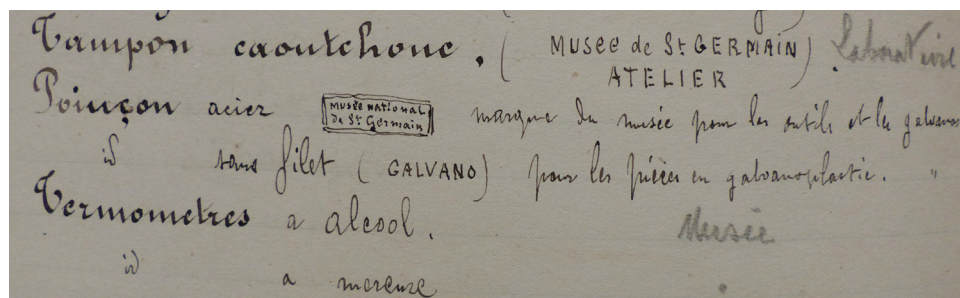 Tampon caoutchouc. ( MUSEE de St GERMAIN ) Laboratoire
ATELIER
Poinçon acier MUSÉE NATIONAL De St Germain marque du musée pour les outils et les galvanos
id sans filet ( GALVANO ) pour les pièces en galvanoplastie. "
Termometres a alcool. Musée
id a mercure